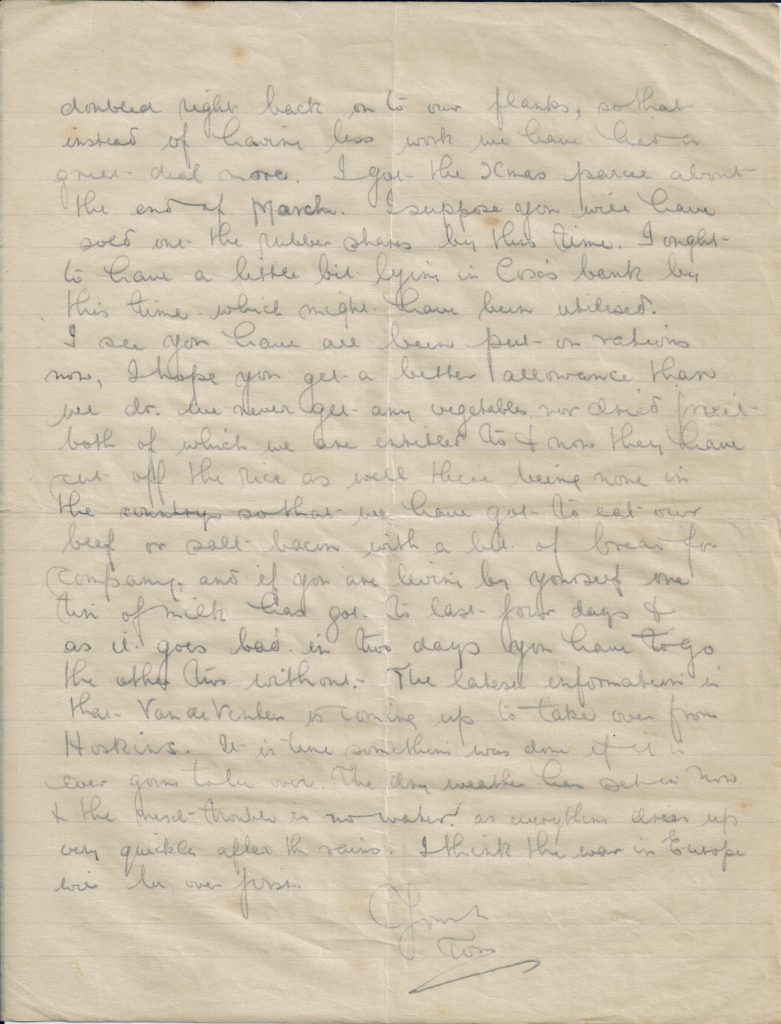 doubled right back on to our flanks, so that
instead of having less work we have had a
great deal more. I got the Xmas parcel about
the end of March. I suppose you will have
sold out the rubber shares by this time. I ought
to have a little bit lying in Cox's bank by
this time which might have been utilised.
I see you have all been put on rations
now, I hope you get a better allowance than
we do. We never get any vegetables nor dried fruit
both of which we are entitled to & now they have
cut off the rice as well there being none in
the country so that we have got to eat our
beef or salt bacon with a bit of bread for
company. and if you are living by yourself one
tin of milk has got to last four days &
as it goes bad in two days you have to go
the other two without. The latest information is
that Van de Venter is coming up to take over from
Hoskins. It is time something was done if it is
ever going to be over. The dry weather has set in now
& the next trouble is no water as everything dries up
very quickly after the rains. I think the war in Europe
will be over first.
Yours
Tom